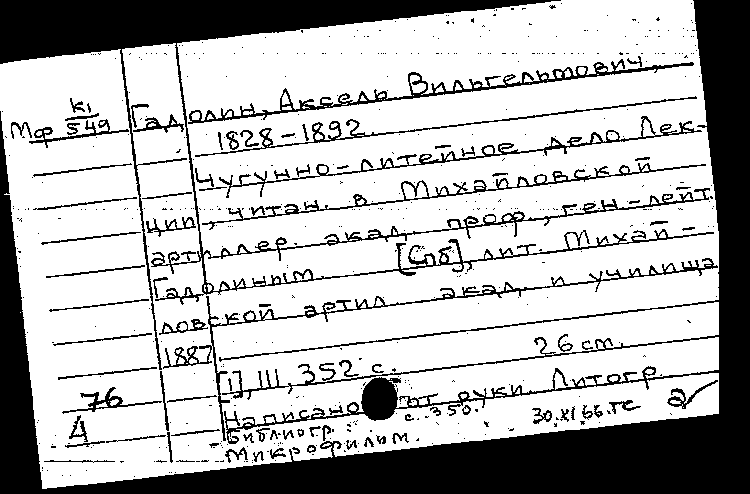 Мф К1/549
Гадолин, Аксель Вильгельмович,
1828-1892.
Чугунно-литейное дело. Лек-
ции, читан. в Михайловской
артиллер. акад. проф., ген-лейт.
Гадолиным. [Спб], лит. Михай-
ловской артил. акад. и училища
1887.
[1], III, 352 с. 26 см.
Написано от руки. Литогр.
Библиогр.: с. 350.
Микрофильм.
30.XI.66.гс
76
Д